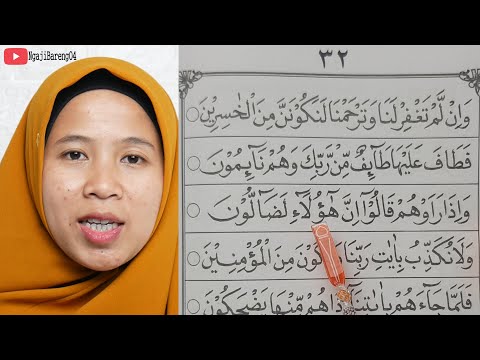 NgajiBareng04
٣٢
وَاِنْ لَّمْ تَغْفِرْ لَنَا وَتَرْحَمْنَا لَنَكُوْنَنَّ مِنَ الْخٰسِرِيْنَ
فَطَافَ عَلَيْهَا طَاۤىِٕفٌ مِّنْ رَّبِّكَ وَهُمْ نَاۤىِٕمُوْنَ
وَاِذَا رَاَوْهُمْ قَالُوْٓا اِنَّ هٰٓؤُلَاۤءِ لَضَاۤلُّوْنَ
وَلَا نُكَذِّبُ بِاٰيٰتِ رَبِّنَا مِنَ الْمُؤْمِنِيْنَ
فَلَمَّا جَاۤءَهُمْ بِاٰيٰتِنَآ هُمْ مِّنْهَا يَضْحَكُوْنَ